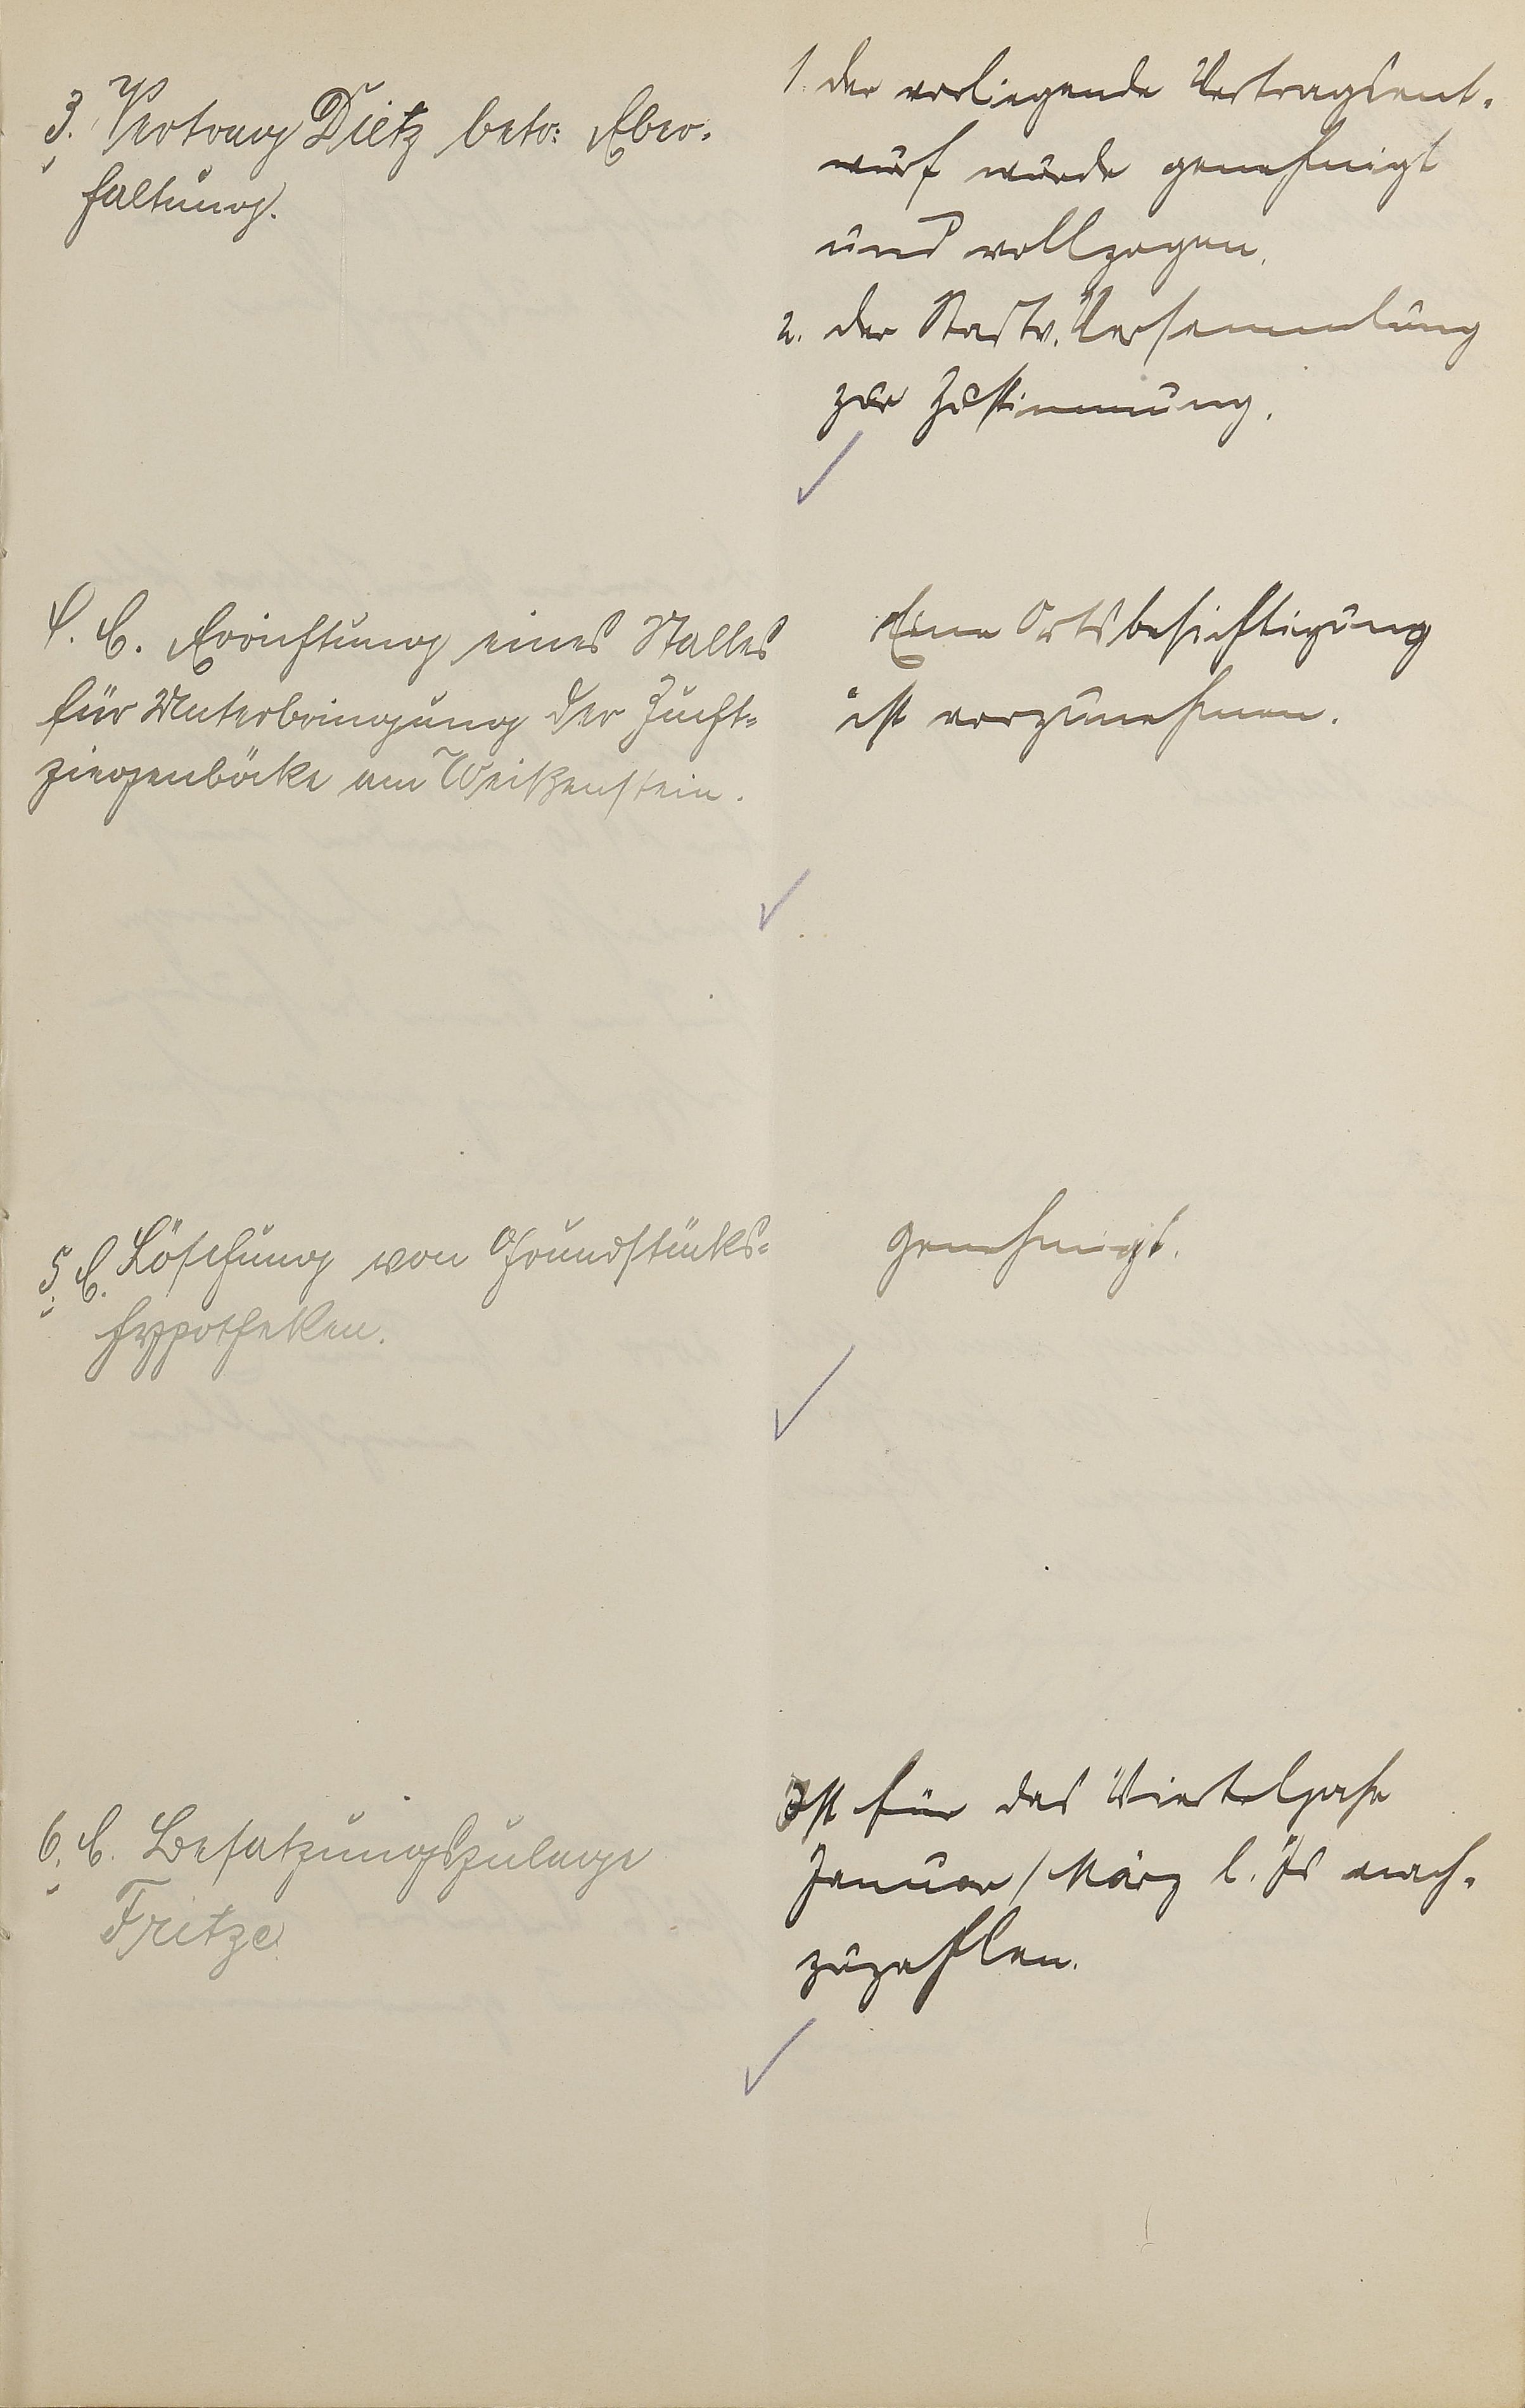 3. Vertrag Dietz betr: Eber-
haltung.
1. der vorliegende Vertragsent-
wurf wurde genehmigt
und vollzogen.
2. der Stadtv. Versammlung
zur Zustimmung.
4. C. Errichtung eines Stalles
für Unterbringung der Zucht-
ziegenböcke am Weißenstein.
Eine Ortsbesichtigung
ist vorzunehmen.
5. C. Löschung von Grundstücks-
hypotheken.
Genehmigt.
6. C. Besatzungszulage
Fritze
Ist für das Vierteljahr
Januar/März l. Js nach-
zuzahlen.